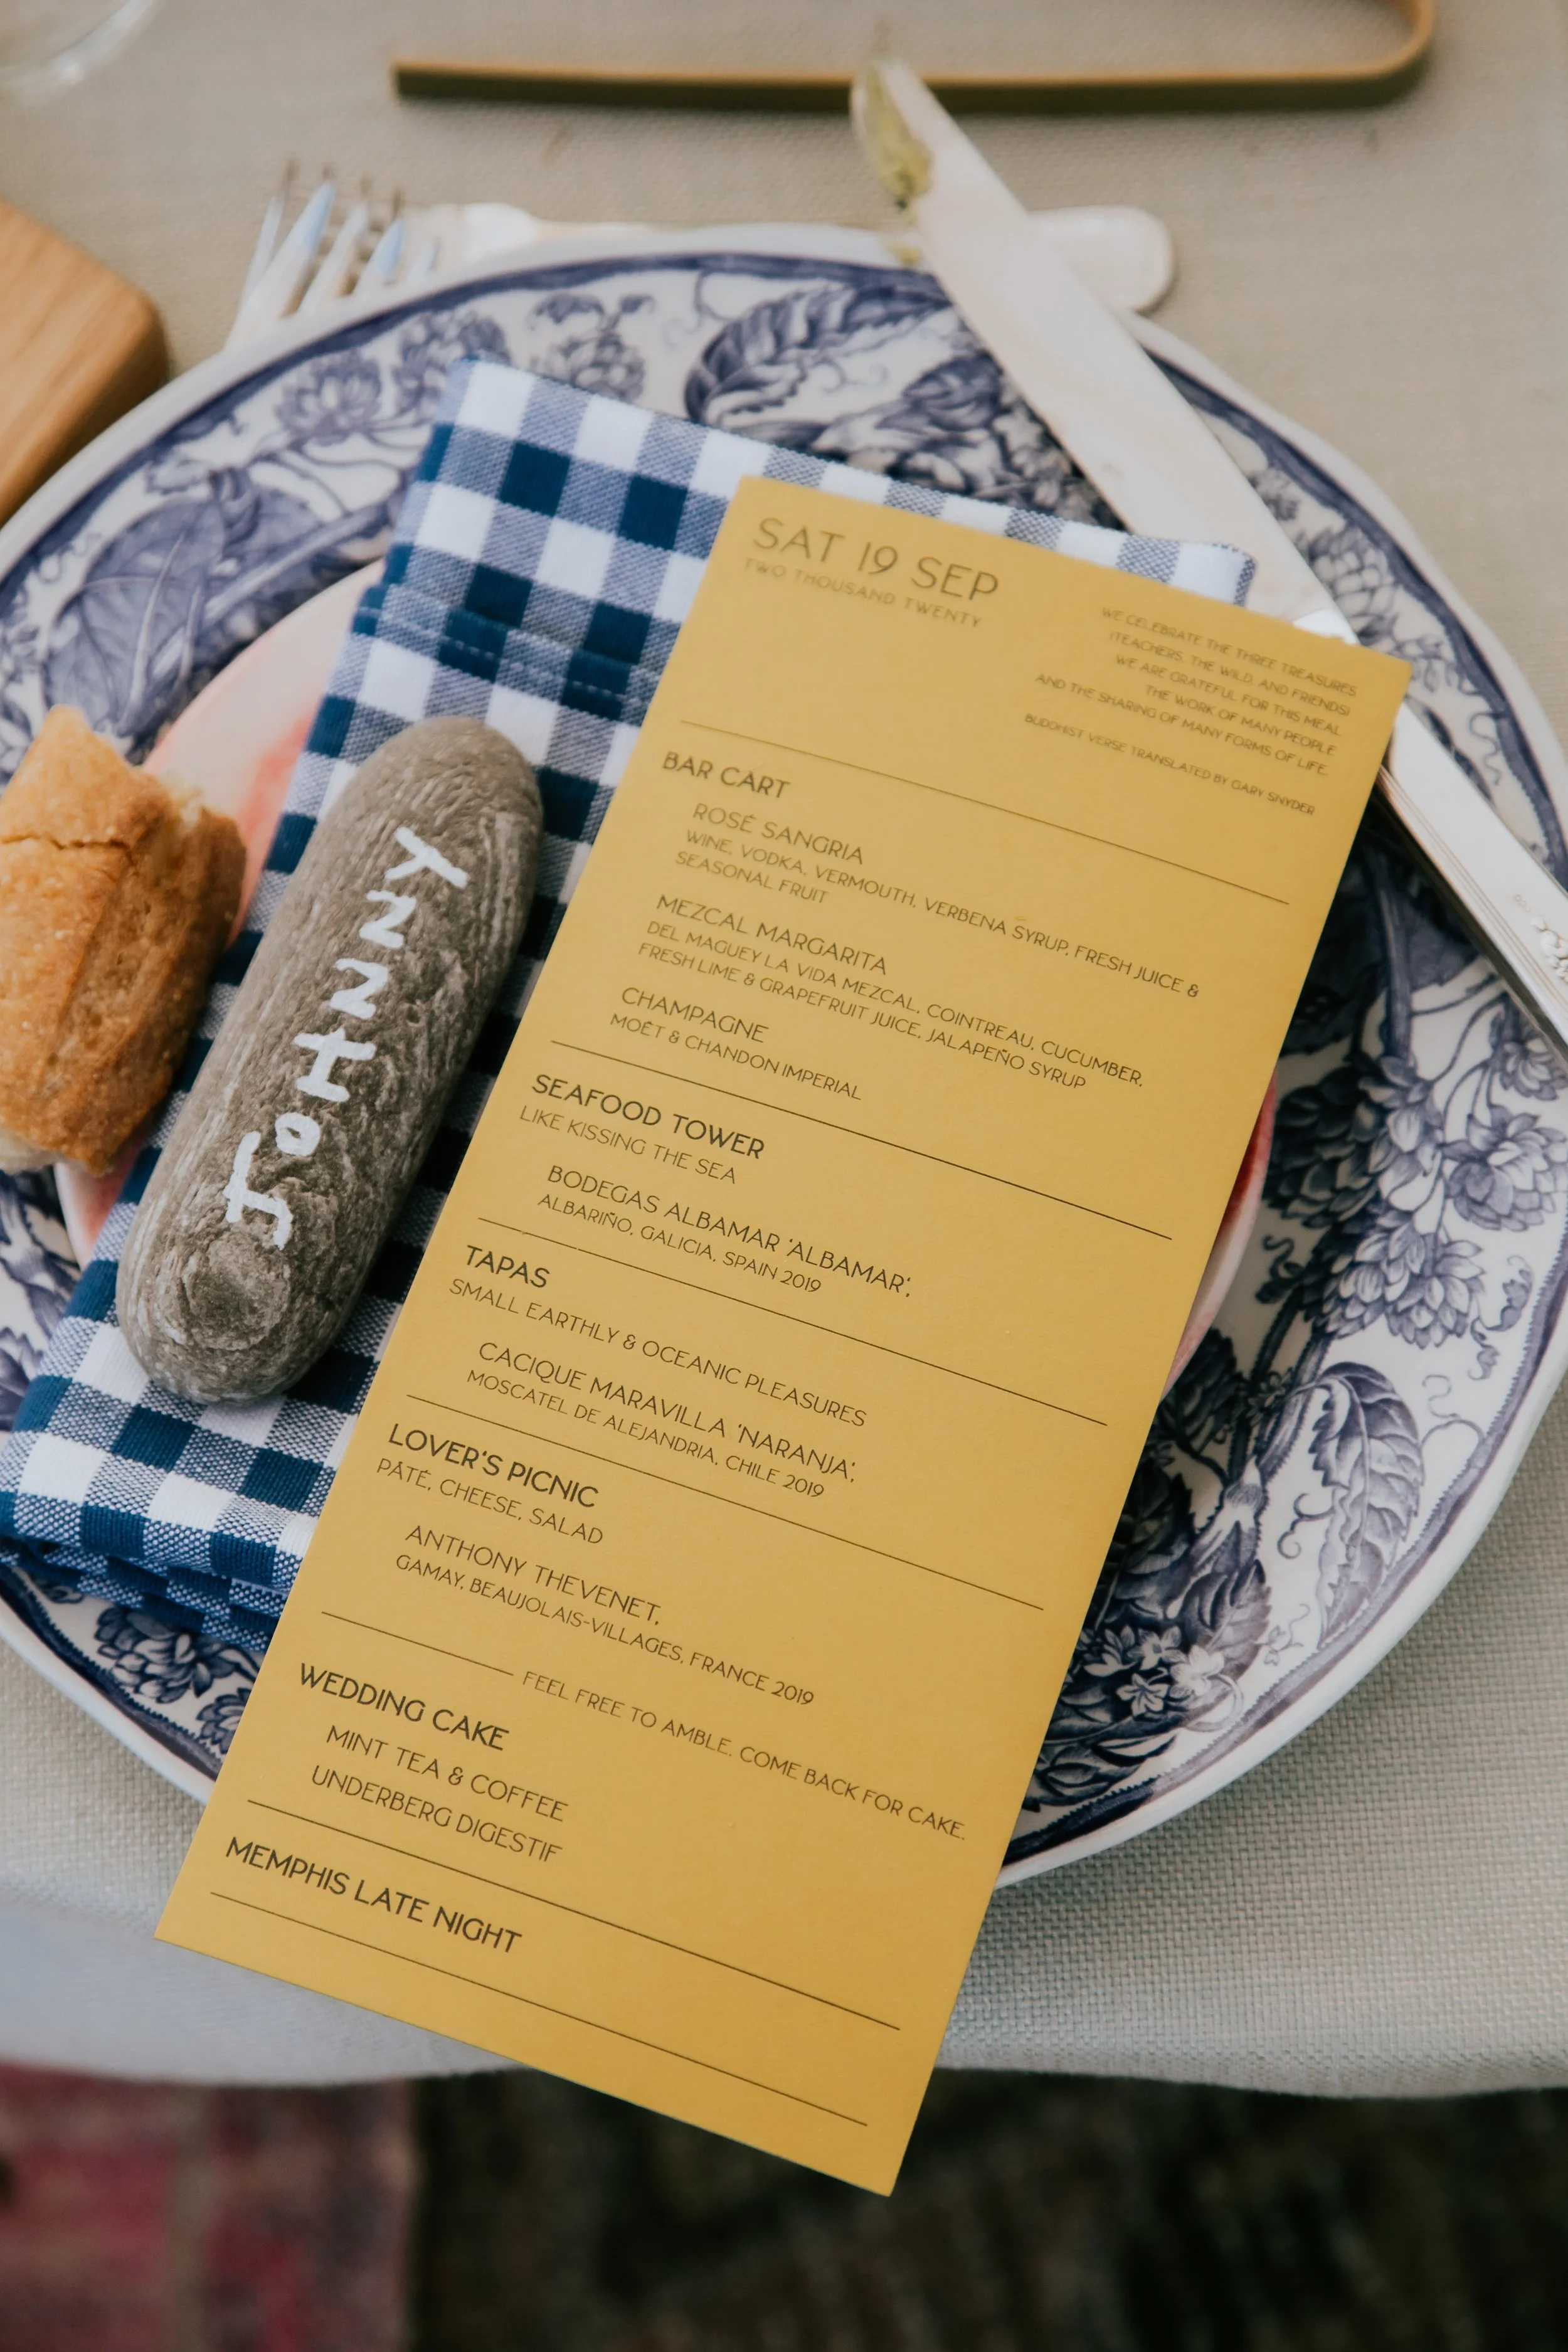 JOHNNY
SAT 19 SEP
TWO THOUSAND TWENTY
WE CELEBRATE THE THREE TREASURES
(TEACHERS, THE WILD, AND FRIENDS)
WE ARE GRATEFUL FOR THIS MEAL
THE WORK OF MANY PEOPLE
AND THE SHARING OF MANY FORMS OF LIFE.
BUDDHIST VERSE TRANSLATED BY GARY SNYDER
BAR CART
ROSÉ SANGRIA
WINE, VODKA, VERMOUTH, VERBENA SYRUP, FRESH JUICE &
SEASONAL FRUIT
MEZCAL MARGARITA
DEL MAGUEY LA VIDA MEZCAL, COINTREAU, CUCUMBER,
FRESH LIME & GRAPEFRUIT JUICE, JALAPEÑO SYRUP
CHAMPAGNE
MOËT & CHANDON IMPERIAL
SEAFOOD TOWER
LIKE KISSING THE SEA
BODEGAS ALBAMAR 'ALBAMAR',
ALBARIÑO, GALICIA, SPAIN 2019
TAPAS
SMALL EARTHLY & OCEANIC PLEASURES
CACIQUE MARAVILLA 'NARANJA',
MOSCATEL DE ALEJANDRIA, CHILE 2019
LOVER'S PICNIC
PÂTÉ, CHEESE, SALAD
ANTHONY THEVENET,
GAMAY, BEAUJOLAIS-VILLAGES, FRANCE 2019
FEEL FREE TO AMBLE. COME BACK FOR CAKE.
WEDDING CAKE
MINT TEA & COFFEE
UNDERBERG DIGESTIF
MEMPHIS LATE NIGHT